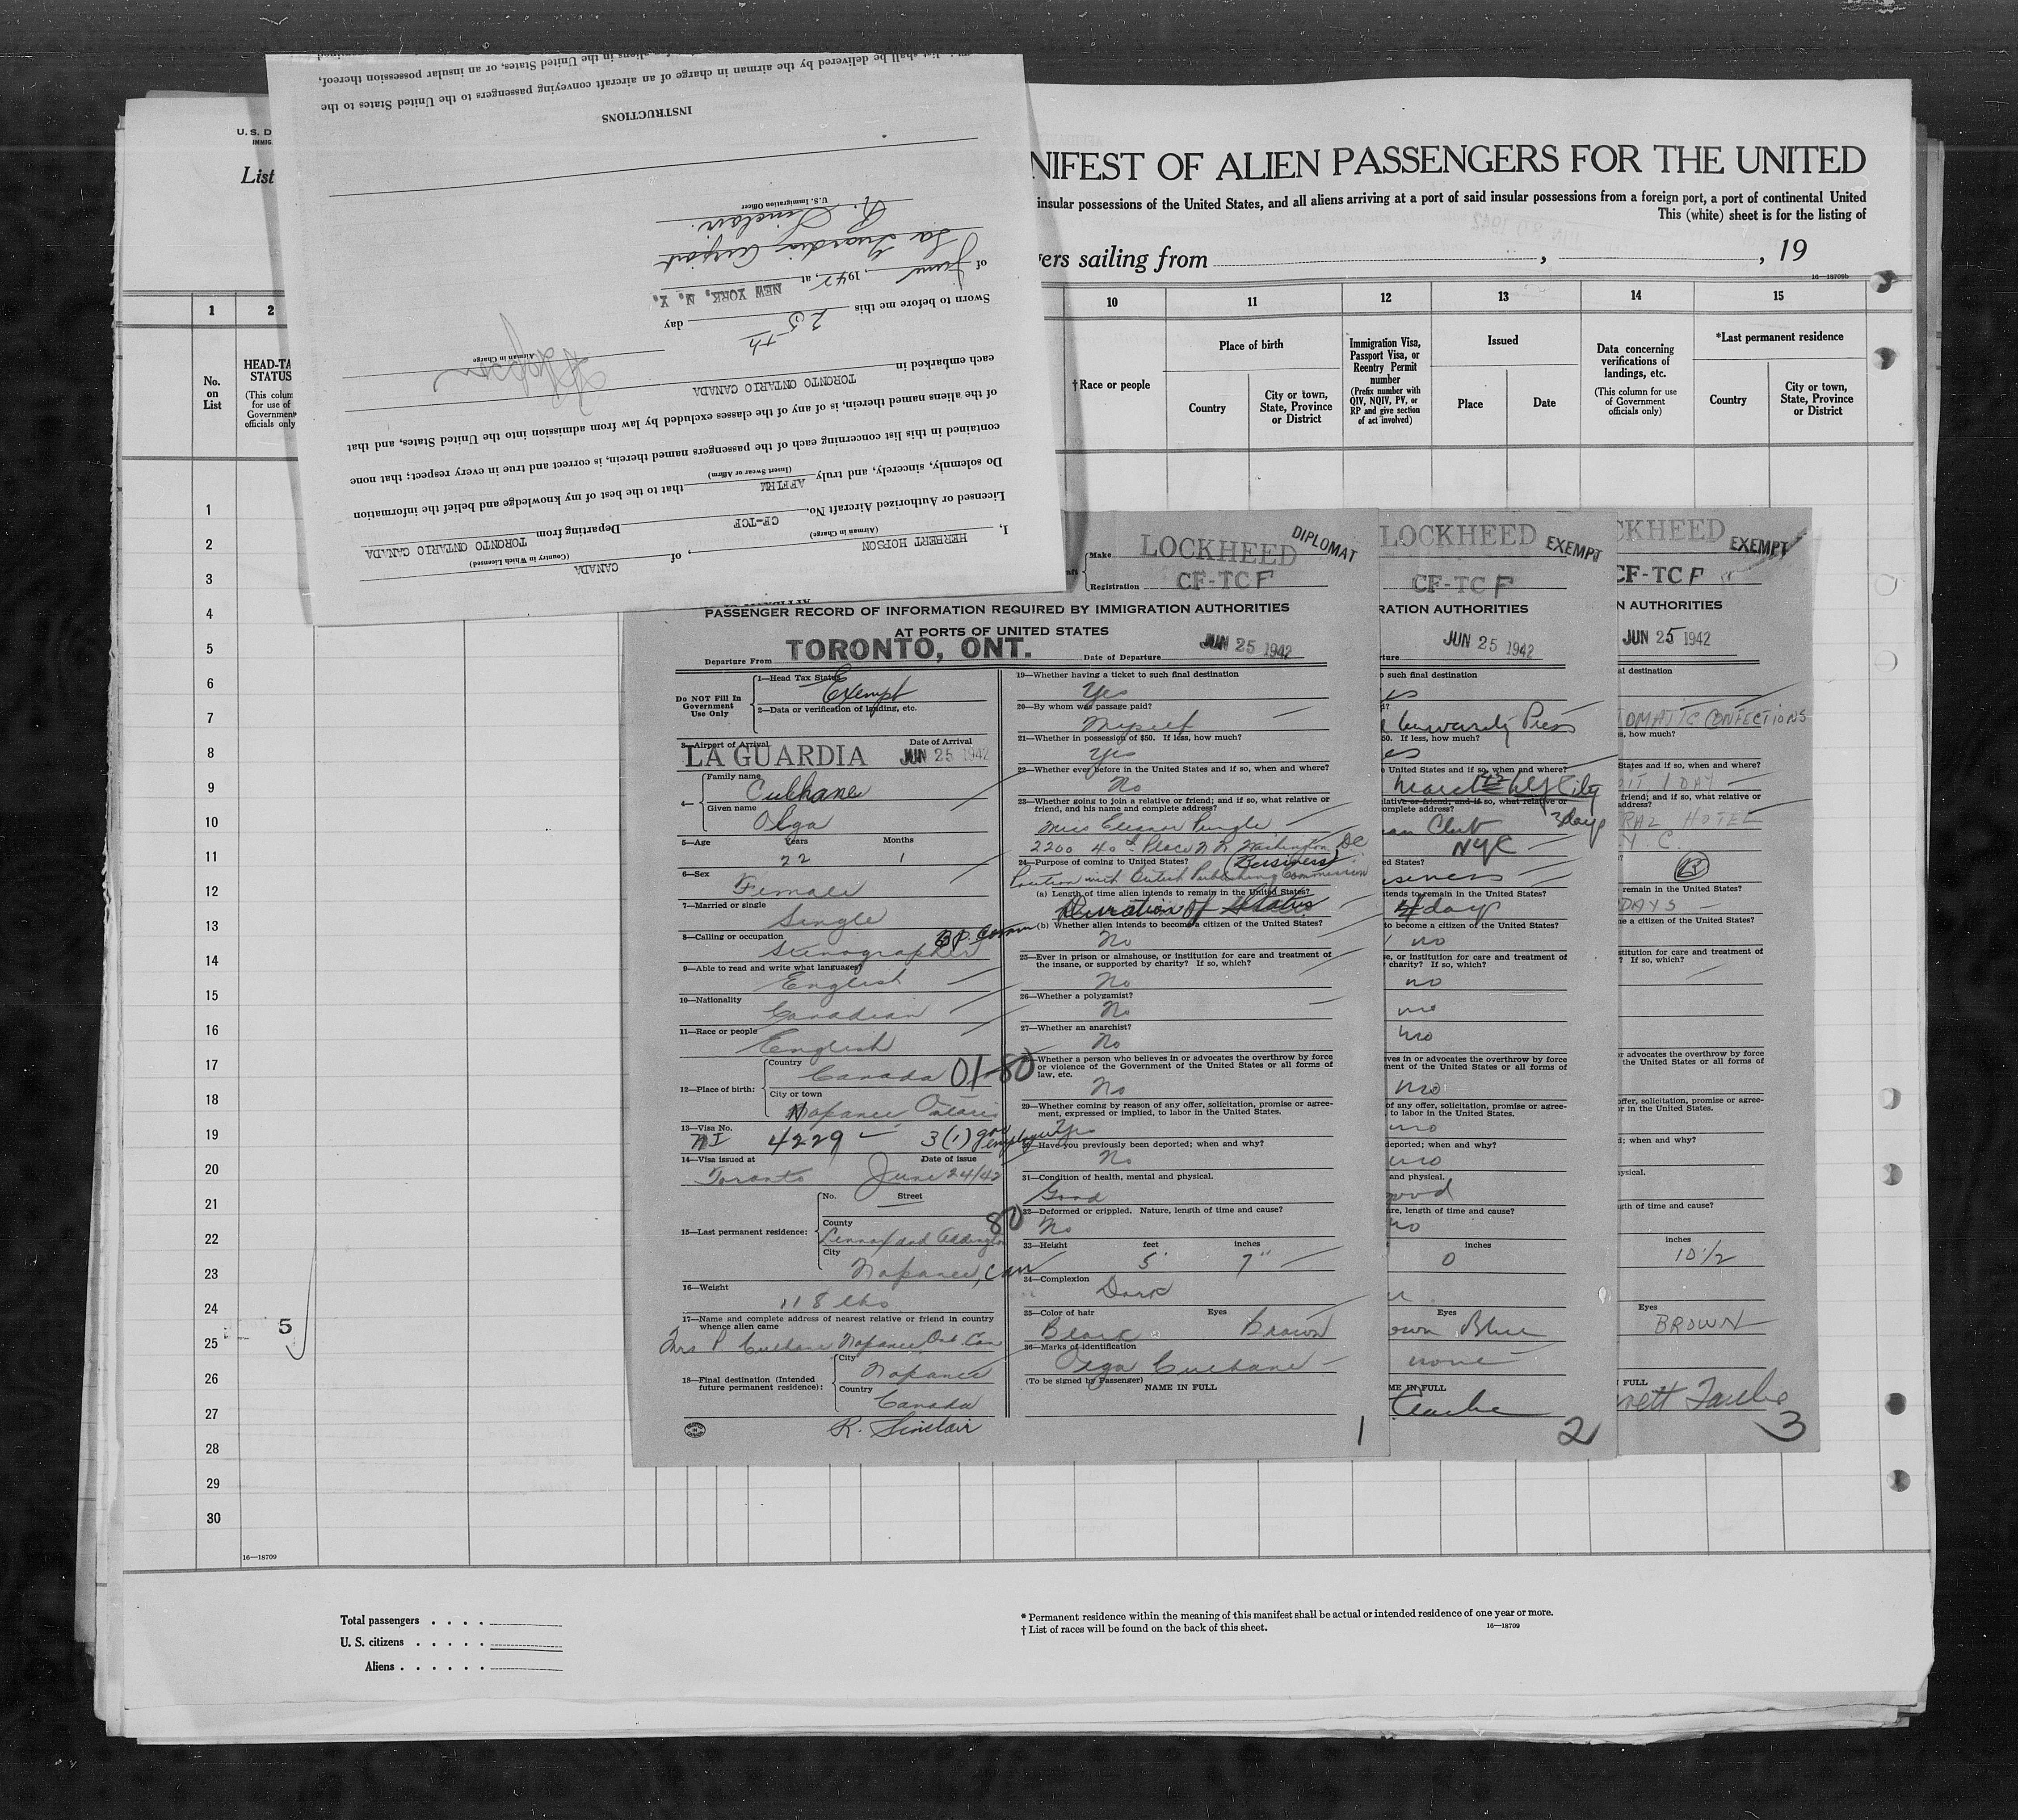 U. S. D
IMMIG
List
NIFEST OF ALIEN PASSENGERS FOR THE UNITED
insular possessions of the United States, and all aliens arriving at a port of said insular possessions from a foreign port, a port of continental United
This (white) sheet is for the listing of
ers sailing from , , 19
16—18709b
1 2 10 11 12 13 14 15
No. on List
HEAD-TA STATUS
(This colum for use of Government officials only)
†Race or people
Place of birth
Country
City or town, State, Province or District
Immigration Visa, Passport Visa, or Reentry Permit number
(Prefix number with QIV, NQIV, PV, or RP and give section of act involved)
Issued
Place
Date
Data concerning verifications of landings, etc.
(This column for use of Government officials only)
*Last permanent residence
Country
City or town, State, Province or District
1
2
3
4
5
6
7
8
9
10
11
12
13
14
15
16
17
18
19
20
21
22
23
24
25
26
27
28
29
30
5
16—18709
Total passengers . . . .
U. S. citizens . . . . .
Aliens . . . . . .
* Permanent residence within the meaning of this manifest shall be actual or intended residence of one year or more.
† List of races will be found on the back of this sheet.
16—18709
I, HERBERT HOPSON, of CANADA
(Airman in Charge) (Country in Which Licensed)
Licensed or Authorized Aircraft No. CF-TCF Departing from TORONTO ONTARIO CANADA
Do solemnly, sincerely, and truly AFFIRM that to the best of my knowledge and belief the information
(Insert Swear or Affirm)
contained in this list concerning each of the passengers named therein, is correct and true in every respect; that none
of the aliens named therein, is of any of the classes excluded by law from admission into the United States, and that
each embarked in TORONTO ONTARIO CANADA
Airman in Charge
Sworn to before me this 25th day
of June, 1942, at NEW YORK, N. Y.
La Guardia Airport
R. Sinclair
U.S. Immigration Officer
INSTRUCTIONS
list shall be delivered by the airman in charge of an aircraft conveying passengers to the United States to the
aliens in the United States, or an insular possession thereof,
Make LOCKHEED
DIPLOMAT
Registration CF-TCF
PASSENGER RECORD OF INFORMATION REQUIRED BY IMMIGRATION AUTHORITIES
AT PORTS OF UNITED STATES
Departure From TORONTO, ONT. Date of Departure JUN 25 1942
Do NOT Fill In Government Use Only
1—Head Tax Status Exempt
2—Data or verification of landing, etc.
3—Airport of Arrival LA GUARDIA Date of Arrival JUN 25 1942
4— Family name Culhane
Given name Olga
5—Age Years 22 Months 1
6—Sex Female
7—Married or single Single
8—Calling or occupation Stenographer B.P. Comm
9—Able to read and write what languages? English
10—Nationality Canadian
11—Race or people English
12—Place of birth: Country Canada 01-80
City or town Napanee Ontario
13—Visa No. NI 4229 3(1) gov employee
14—Visa issued at Toronto Date of issue June 24/42
15—Last permanent residence: No. Street
County Lennox and Addington 80
City Napanee, Can
16—Weight 118 lbs
17—Name and complete address of nearest relative or friend in country whence alien came
Mrs P. Culhane Napanee Ont Can
18—Final destination (Intended future permanent residence): City Napanee
Country Canada
R. Sinclair
19—Whether having a ticket to such final destination
Yes
20—By whom was passage paid?
Myself
21—Whether in possession of $50. If less, how much?
Yes
22—Whether ever before in the United States and if so, when and where?
No
23—Whether going to join a relative or friend; and if so, what relative or friend, and his name and complete address?
Miss Eleanor Pringle
2200 40th Place N.W. Washington DC
24—Purpose of coming to United States? (Business)
Position with British Publishing Commission
(a) Length of time alien intends to remain in the United States?
Duration of Status
(b) Whether alien intends to become a citizen of the United States?
No
25—Ever in prison or almshouse, or institution for care and treatment of the insane, or supported by charity? If so, which?
No
26—Whether a polygamist?
No
27—Whether an anarchist?
No
28—Whether a person who believes in or advocates the overthrow by force or violence of the Government of the United States or all forms of law, etc.
No
29—Whether coming by reason of any offer, solicitation, promise or agreement, expressed or implied, to labor in the United States.
Yes
30—Have you previously been deported; when and why?
No
31—Condition of health, mental and physical.
Good
32—Deformed or crippled. Nature, length of time and cause?
No
33—Height feet 5' inches 7"
34—Complexion Dark
35—Color of hair Black Eyes Brown
36—Marks of identification
Olga Culhane
(To be signed by Passenger)
NAME IN FULL
1
LOCKHEED
EXEMPT
CF-TCF
RATION AUTHORITIES
JUN 25 1942
such final destination
50. If less, how much?
United States and if so, when and where?
complete address?
3 days
Club
NYC
ed States?
tends to remain in the United States?
4 days
to become a citizen of the United States?
no
se, or institution for care and treatment of
charity? If so, which?
no
no
no
ves in or advocates the overthrow by force
ment of the United States or all forms of
no
of any offer, solicitation, promise or agree-
to labor in the United States.
no
deported; when and why?
no
and physical.
ure, length of time and cause?
no
inches
0
Eyes
Blue
none
ME IN FULL
2
CKHEED
EXEMPT
CF-TCF
N AUTHORITIES
JUN 25 1942
al destination
OMATIC CONFECTIONS
ss, how much?
States and if so, when and where?
1 DAY
friend; and if so, what relative or
address?
HOTEL
Y. C.
B
remain in the United States?
DAYS
e a citizen of the United States?
stitution for care and treatment of
? If so, which?
r advocates the overthrow by force
the United States or all forms of
offer, solicitation, promise or agree-
r in the United States.
d; when and why?
ysical.
gth of time and cause?
inches
10 1/2
Eyes
BROWN
FULL
3